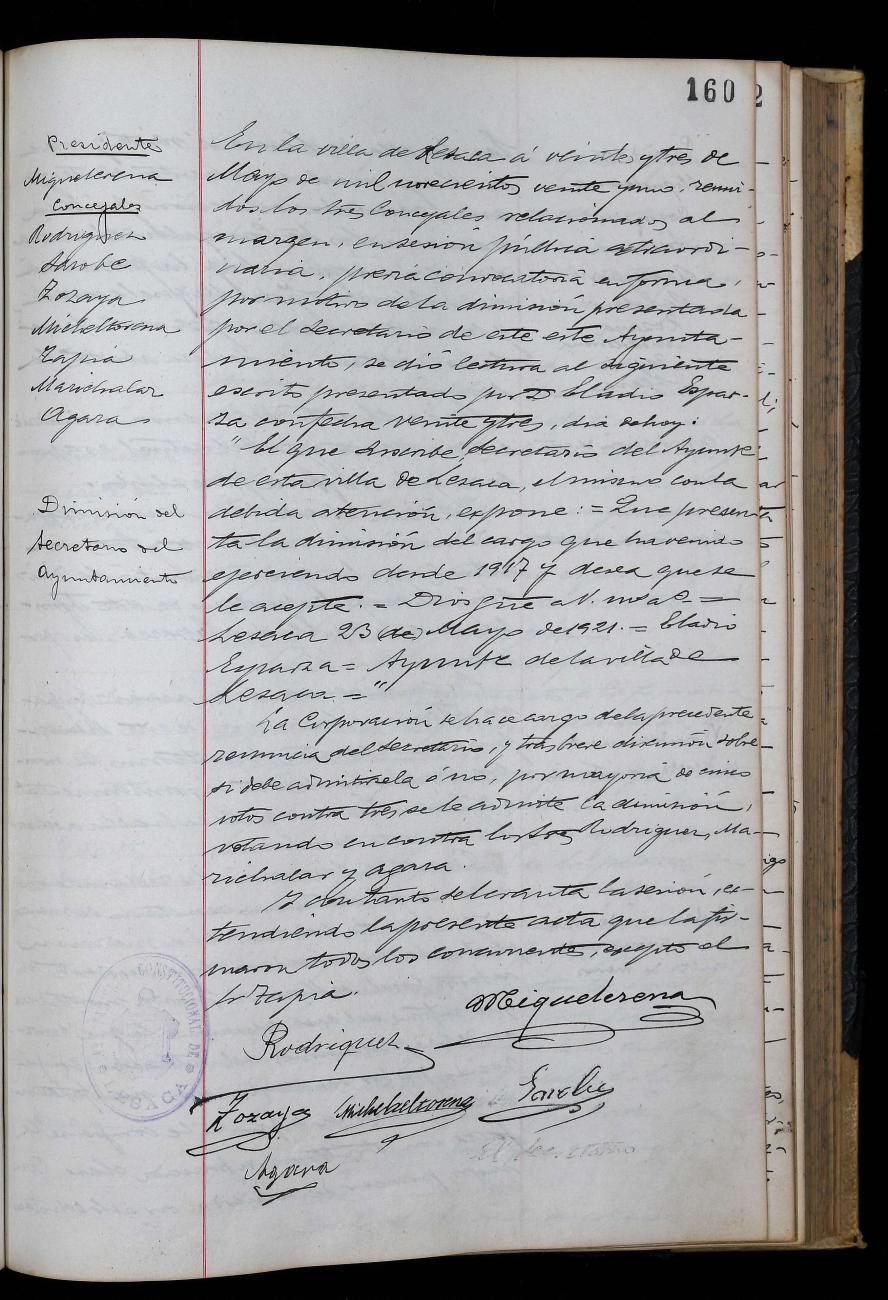 160
Presidente
Miguelerena
Concejales
Rodriguez
Sarobe
Zozaya
Micheltorena
Tapia
Marichalar
Agara
Dimisión del
Secretario del
Ayuntamiento
En la villa de Lesaca á veinte y tres de
Mayo de mil novecientos veinte y uno, reuni-
dos los tres Concejales relacionados al
margen, en sesión pública extraordi-
naria, previa convocatoria en forma,
por motivo de la dimisión presentada
por el Secretario de este este Ayunta-
miento, se dió lectura al siguiente
escrito presentado por D Eladio Espar-
za con fecha veinte y tres, dia de hoy:
"El que suscribe, Secretario del Ayunte
de esta villa de Lesaca, al mismo con la
debida atención, expone: = Que presen-
ta la dimisión del cargo que ha venido
ejerciendo desde 1917 y desea que se
le acepte. = Dios gue a V. ms as =
Lesaca 23 de Mayo de 1921. = Eladio
Esparza = Ayunte de la villa de
Lesaca. = "
La Corporación se hace cargo de la precedente
renuncia del Secretario, y tras breve discusión sobre
si debe admitirsela ó no, por mayoria de cinco
votos contra tres se le admite la dimisión,
votando en contra los Sres Rodriguez, Ma-
richalar y Agara.
Y con tanto se levanta la sesión, ex-
tendiendo la presente acta que la fir-
maron todos los concurrentes, excepto el
Sr Tapia.
Miguelerena
Rodriguez
Zozaya Micheltorena Sarobe
Agara
El Secretario
CONSTITUCIONAL DE
LESACA